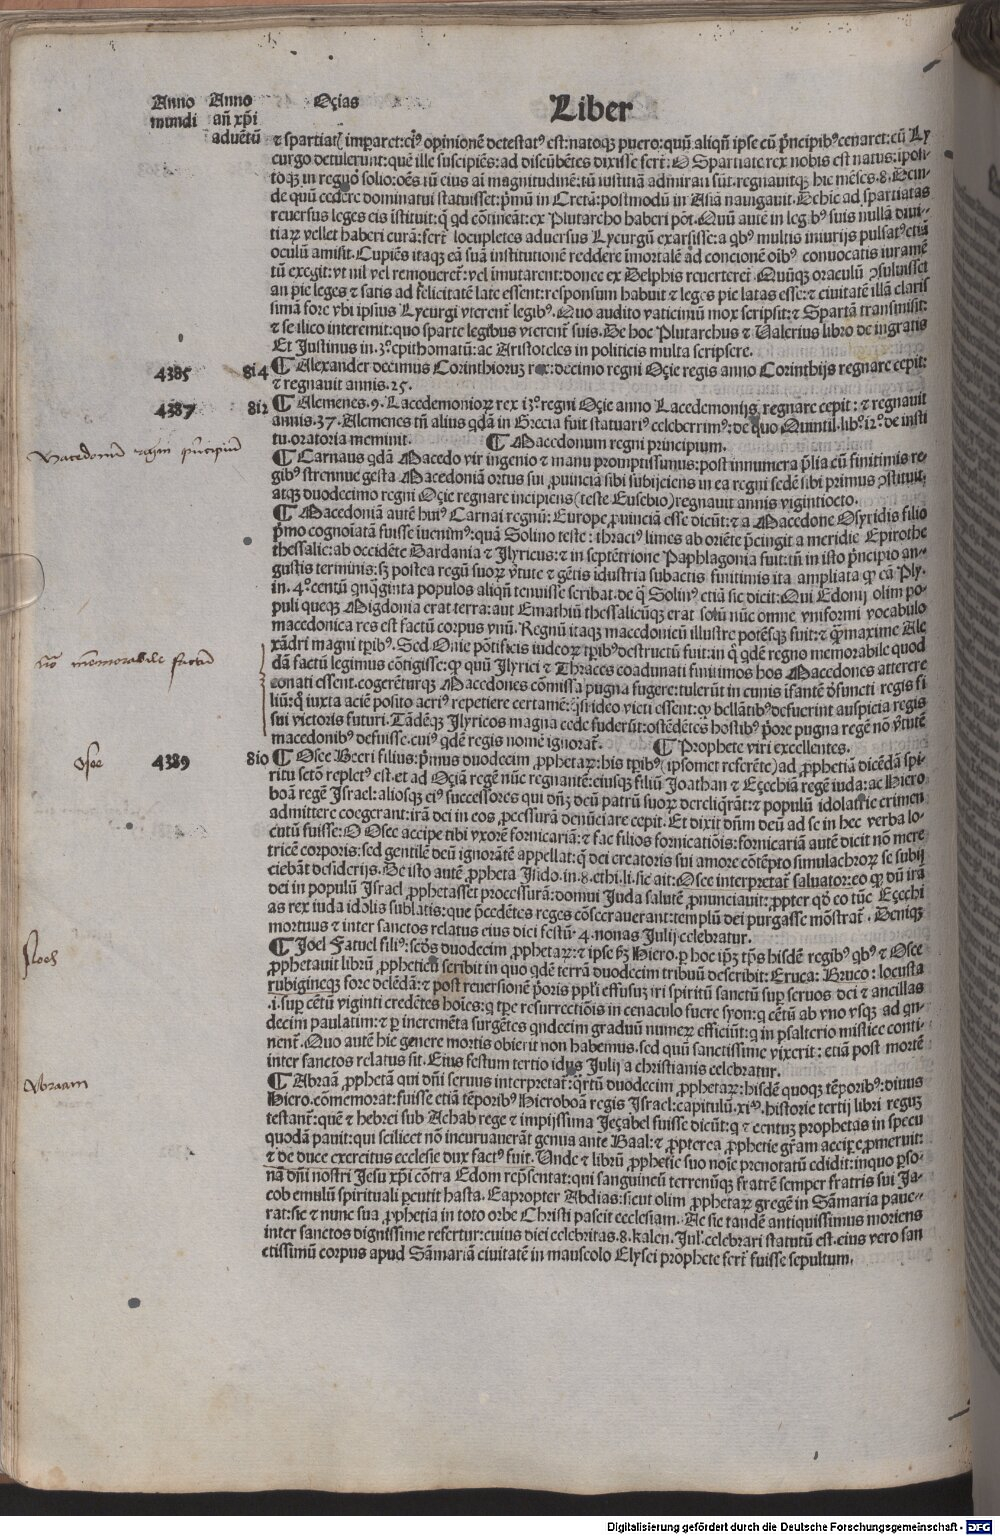 Anno mundi
Anno añ xp̄i aduētū
Oçias
Liber
⁊ spartiatꝭ imꝑaret: eiꝰ opinionē detestatꝰ est: natoqꝫ puero: quū aliqn̄ ipse cū p̄ncipibꝰ cenaret: eū Ly
curgo detulerunt: quē ille suscipiēs: ad discūbētes dixisse fert̄: O Spartiate rex nobis est natus: ipoſi
toqꝫ in regio solio: oēs tū eius ai magnitudinē: tū iustitiā admirati sūt. regnauitqꝫ hic mēses. 8. Dein
de quū cedere dominatui statuisset: p̄mū in Cretā: postmodū in Asiā nauigauit. Dehic ad spartiatas
reuersus leges eis īstituit: q̄ qd cōtineāt: ex Plutarcho haberi pōt. Quū autē in legibꝰ suis nullā diui-
tiaꝝ vellet haberi curā: fert̄ locupletes aduersus Lycurgū exarsisse: a qbꝰ multis iniurijs pulsatꝰ etiā
oculū amisit. Cupiēs itaqꝫ eā suā institutionē reddere īmortalē ad concionē oībꝰ conuocatis iuramē
tū exegit: vt nil vel remoueret̄: vel imutarent: donec ex Delphis reuerteret̄. Quūqꝫ oraculū ꝯsuluisset
an pie leges ⁊ satis ad felicitatē late essent: responsum habuit ⁊ leges pie latas esse: ⁊ ciuitatē illā claris
simā fore vbi ipsius Lycurgi vterent̄ legibꝰ. Quo audito vaticiniū mox scripsit: ⁊ Spartā transmisit:
⁊ se ilico interemit: quo sparte legibus vterent̄ suis. De hoc Plutarchus ⁊ Valerius libro de ingratis
Et Justinus in. 3.º epithomatū: ac Aristoteles in politicis multa scripsere.
4385 814 ¶ Alexander decimus Corinthioruꝫ rex: decimo regni Oçie regis anno Corinthijs regnare cepit:
⁊ regnauit annis. 25.
4387 812 ¶ Alcmenes. 9. Lacedemonioꝝ rex 12.º regni Oçie anno Lacedemonijs regnare cepit: ⁊ regnauit
annis. 37. Alcmenes tn̄ alius qdā in Grecia fuit statuariꝰ celeberrimꝰ: de quo Quintil. libº. 12.º de insti
tu. oratoria meminit. ¶ Macedonum regni principium.
Macedonū regni principiū
¶ Carnaus qdā Macedo vir ingenio ⁊ manu promptissimus: post innumera p̄lia cū finitimis re-
gibꝰ strennue gesta Macedoniā ortus sui ꝓuinciā sibi subijciens in ea regni sedē sibi primus ꝯstituit.
atqꝫ duodecimo regni Oçie regnare incipiens (teste Eusebio) regnauit annis vigintiocto.
¶ Macedoniā autē huiꝰ Carnai regnū: Europe ꝓuinciā esse dicūt: ⁊ a Macedone Osyridis filio
p̄mo cognoīatā fuisse iuenimꝰ: quā Solino teste: thraciꝰ limes ab oriēte p̄cingit a meridie Epirothe
thessalie: ab occidēte Dardania ⁊ Jlyricus: ⁊ in septētrione Paphlagonia fuit: tn̄ in isto p̄ncipio an-
gustis terminis: sꝫ postea regū suoꝝ v̄tute ⁊ gētis idustria subactis finitimis ita ampliata ꝙ eā Ply.
in. 4.º centū qnq̄ginta populos aliqn̄ tenuisse scribat. de q̄ Solinꝰ etiā sic dicit: Qui Edonij olim po-
puli queqꝫ Migdonia erat terra: aut Emathiū thessalicūqꝫ erat solū nūc omne vniformi vocabulo
macedonica res est factū corpus vnū. Regnū itaqꝫ macedonicū illustre potēsqꝫ fuit: ⁊ q̄ꝫmaxime Ale
xādri magni tpibꝰ. Sed Onie pōtificis iudeoꝝ tpibꝰ destructū fuit: in q̄ qdē regno memorabile quod
dā factū legimus cōtigisse: ꝙ quū Jlyrici ⁊ Thraces coadunati finitimos hos Macedones atterere
No memorabile factū
conati essent. cogerēturqꝫ Macedones cōmissa pugna fugere: tulerūt in cunis ifantē defuncti regis fi
liū: q̄ iuxta aciē posito acriꝰ repetiere certamē: q̄si ideo victi essent: ꝙ bellātibꝰ defuerint auspicia regis
sui victoris futuri. Tādēqꝫ Jlyricos magna cede fuderūt: ostēdētes hostibꝰ p̄ore pugna regē nō v̄tutē
macedonibꝰ defuisse. cuiꝰ qdē regis nomē ignorat̄. ¶ Prophete viri excellentes.
Osee
4389 810 ¶ Osee Beeri filius: p̄mus duodecim ꝓphetaꝝ: his tpibꝰ (ipsomet referēte) ad ꝓphetiā dicēdā spi-
ritu sctō repletꝰ est. et ad Oçiā regē nūc regnantē: eiusqꝫ filiū Joathan ⁊ Eçechiā regē iuda: ac Hiero
boā regē Jsrael: aliosqꝫ eiꝰ successores qui dn̄ꝫ deū patrū suoꝝ dereliq̄rāt: ⁊ populū idolatrie crimen
admittere coegerant: irā dei in eos ꝓcessurā denūciare cepit. Et dixit dn̄m deū ad se in hec verba lo-
cutū fuisse: O Osee accipe tibi vxorē fornicariā: ⁊ fac filios fornicatiōis: fornicariā autē dicit nō mere
tricē corporis: sed gentilē deū ignorātē appellat: q̄ dei creatoris sui amore cōtēpto simulachroꝝ se subij
ciebāt desiderijs. De isto autē ꝓpheta Jsido. in. 8. ethi. li. sic ait: Osee interpretat̄ saluator: eo ꝙ dū irā
dei in populū Jsrael ꝓphetasset processurā: domui Juda salutē ꝓnunciauit: ꝓpter qd̓ eo tūc Eçechi
as rex iuda idolis sublatis: que p̄cedētes reges cōsecrauerant: templū dei purgasse mōstrat̄. Deniqꝫ
mortuus ⁊ inter sanctos relatus eius diei festū. 4. nonas Julij celebratur.
Joel
¶ Joel Fatuel filiꝰ: scdꝰ duodecim ꝓphetaꝝ: ⁊ ipse ẜꝫ Hiero. ꝑ hoc ip̄ꝫ tp̄s hisdē regibꝰ qbꝰ ⁊ Osee
ꝓphetauit librū ꝓpheticū scribit in quo qdē terrā duodecim tribuū describit: Eruca: Bruco: locusta
rubigineqꝫ fore delēdā: ⁊ post reuersionē p̄oris pp̄li effusuꝫ iri spiritū sanctū suꝑ seruos dei ⁊ ancillas
.i. suꝑ cētū viginti credētes hoīes: q tpe resurrectiōis in cenaculo fuere syon: q cētū ab vno vsqꝫ ad qn-
decim paulatim: ⁊ ꝑ incremēta surgētes qndecim graduū numeꝝ efficiūt: q in psalterio mistice conti-
nent̄. Quo autē hic genere mortis obierit non habemus. sed quū sanctissime vixerit: etiā post mortē
inter sanctos relatus sit. Eius festum tertio idus Julij a christianis celebratur.
Abraam
¶ Abraā ꝓphetā qui dn̄i seruus interpretat̄: q̄rtū duodecim ꝓphetaꝝ: hisdē quoqꝫ tēporibꝰ: diuus
Hiero. cōmemorat: fuisse etiā tēporibꝰ Hieroboā regis Jsrael: capitulū. xiº. historie tertij libri reguꝫ
testant̄: quē ⁊ hebrei sub Achab rege ⁊ impijssima Jeçabel fuisse dicūt: q ⁊ centuꝫ prophetas in specu
quodā pauit: qui scilicet nō incuruauerāt genua ante Baal: ⁊ ꝓpterea ꝓphetie gr̄am acciꝑe ꝓmeruit:
⁊ de duce exercitus ecclesie dux factꝰ fuit. Unde ⁊ librū ꝓphetie suo noīe prenotatū edidit: inquo ꝑso-
nā dn̄i nostri Jesu xp̄i cōtra Edom rep̄sentat: qui sanguineū terrenūqꝫ fratrē semper fratris sui Ja-
cob emulū spirituali ꝑcutit hasta. Eapropter Abdias: sicut olim ꝓphetaꝝ gregē in Samaria paue-
rat: sic ⁊ nunc sua ꝓphetia in toto orbe Christi pascit ecclesiam. Ac sic tandē antiquissimus moriens
inter sanctos dignissime refertur: cuius diei celebritas. 8. kalen. Jul. celebrari statutū est. eius vero san
ctissimū corpus apud Samariā ciuitatē in mausoleo Elysei prophete fert̄ fuisse sepultum.
Digitalisierung gefördert durch die Deutsche Forschungsgemeinschaft - DFG